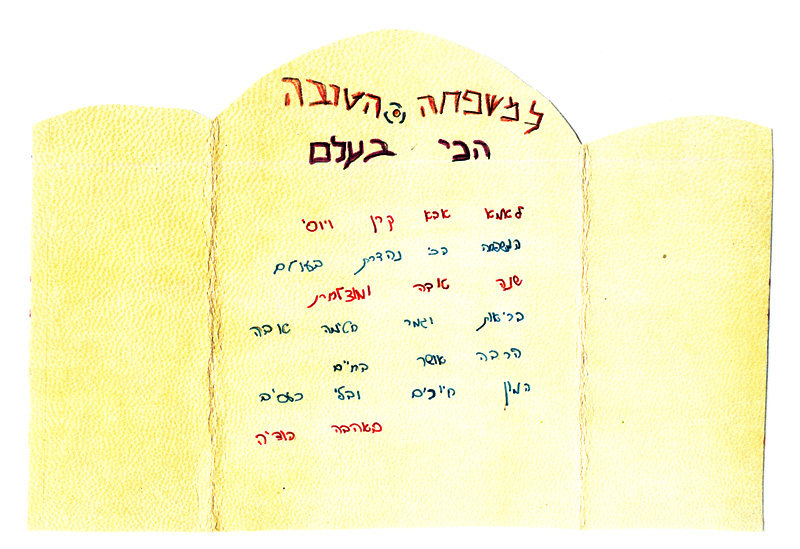 למשפחה הטובה
הכי בעלם
לאמא אבא קרן ויוסי
המשפחה הכי נהדרת בעולם
שנה טובה ומוצלחת
בריאות וגמר חתימה טובה
הרבה אושר בחיים
המון חיוכים ובלי כעסים
מאהבה